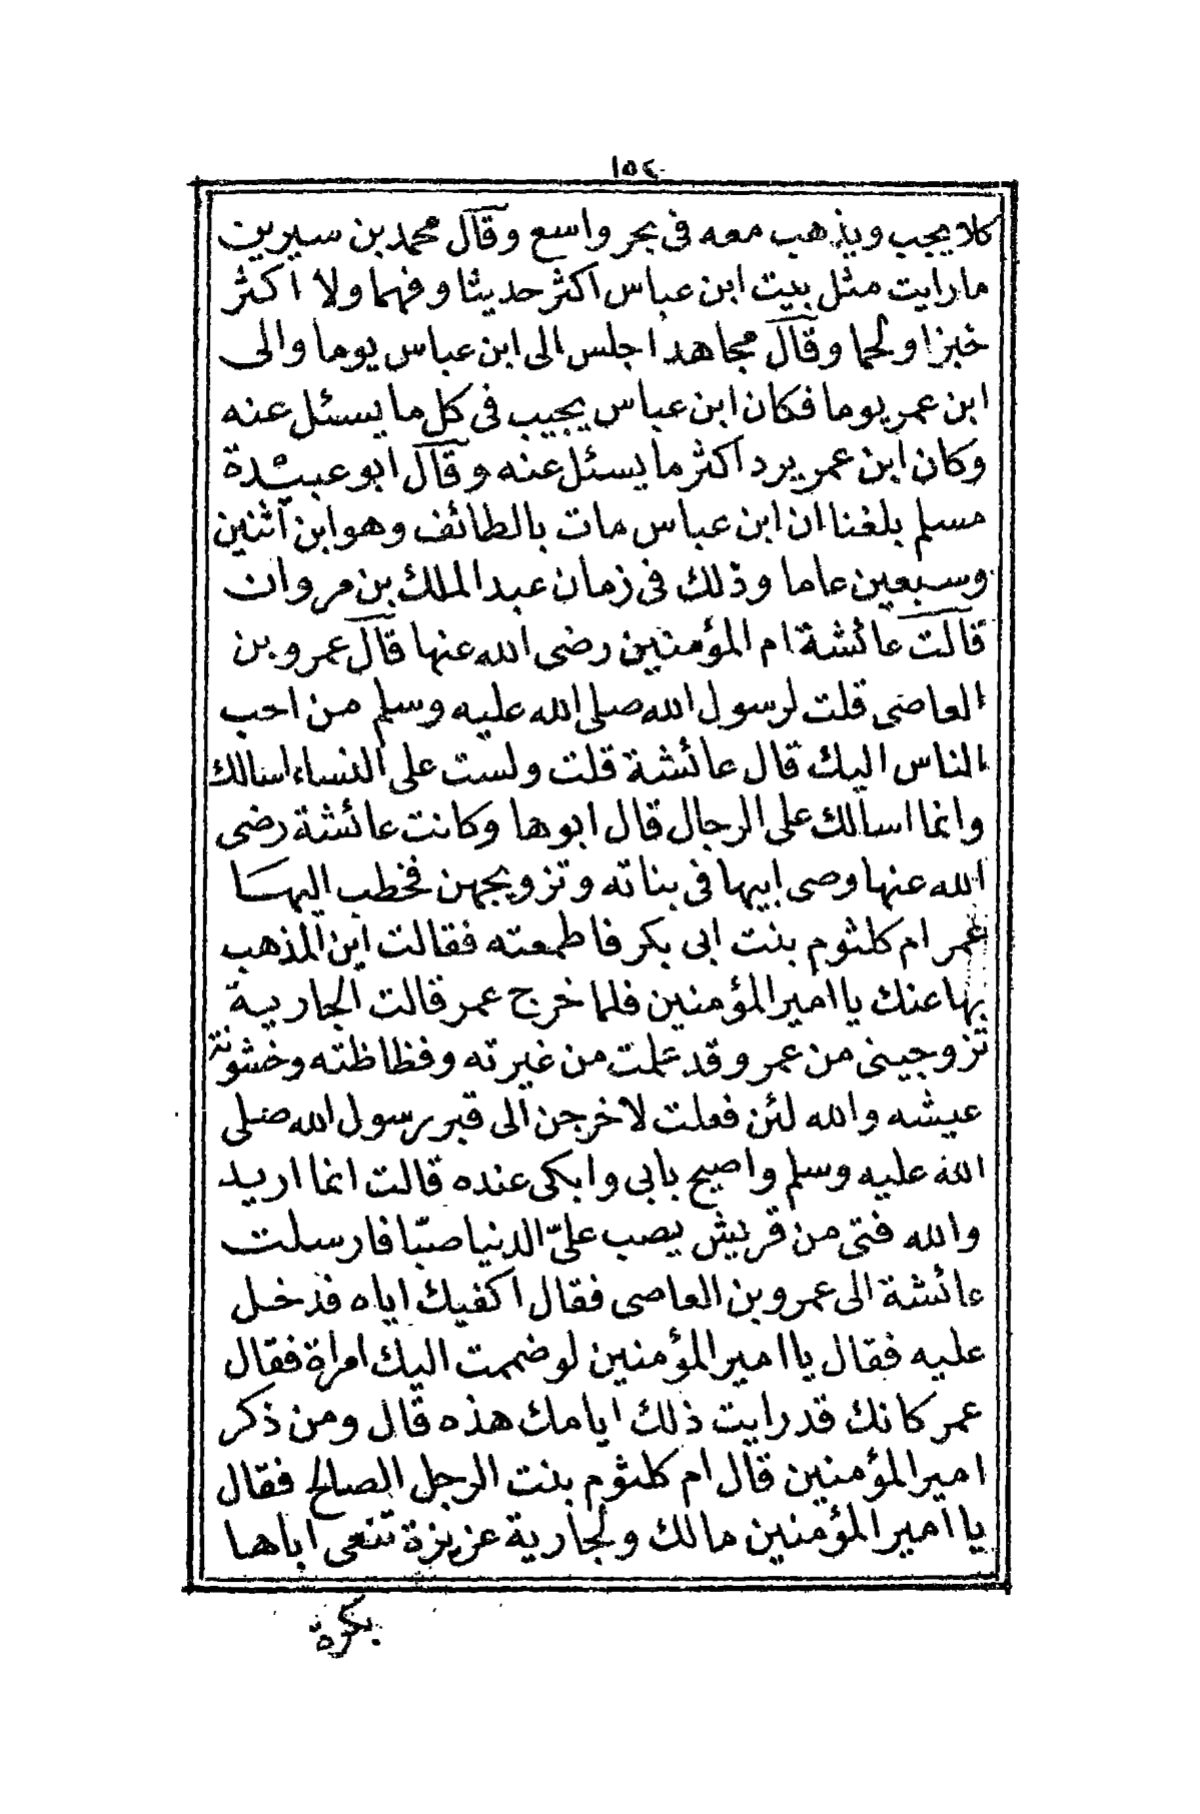 ١٥٤
كلا يجيب ويذهب معه فى بحر واسع وقال محمد بن سيرين
ما رايت مثل بيت ابن عباس اكثر حديثا وفهما ولا اكثر
خبزا ولحما وقال مجاهد اجلس الى ابن عباس يوما والى
ابن عمر يوما فكان ابن عباس يجيب فى كل ما يسئل عنه
وكان ابن عمر يرد اكثر ما يسئل عنه وقال ابو عبيدة
مسلم بلغنا ان ابن عباس مات بالطائف وهو ابن اثنين
وسبعين عاما وذلك فى زمان عبد الملك بن مروان
قالت عائشة ام المؤمنين رضى الله عنها قال عمرو بن
العاصى قلت لرسول الله صلى الله عليه وسلم من احب
الناس اليك قال عائشة قلت ولست على النساء اسالك
وانما اسالك على الرجال قال ابوها وكانت عائشة رضى
الله عنها وصى ابيها فى بناته وتزويجهن فخطب اليها
عمر ام كلثوم بنت ابى بكر فاطمعته فقالت اين المذهب
بها عنك يا امير المؤمنين فلما خرج عمر قالت الجارية
تزوجينى من عمر وقد علمت من غيرته وفظاظته وخشونة
عيشه والله لئن فعلت لاخرجن الى قبر رسول الله صلى
الله عليه وسلم واصيح بابى وابكى عنده قالت انما اريد
والله فتى من قريش يصب علىّ الدنيا صبّا فارسلت
عائشة الى عمرو بن العاصى فقال اكفيك اياه فدخل
عليه فقال يا امير المؤمنين لو ضممت اليك امراة فقال
عمر كانك قد رايت ذلك ايامك هذه قال ومن ذكر
امير المؤمنين قال ام كلثوم بنت الرجل الصالح فقال
يا امير المؤمنين مالك ولجارية عزيزة تنعى اباها
بكرة